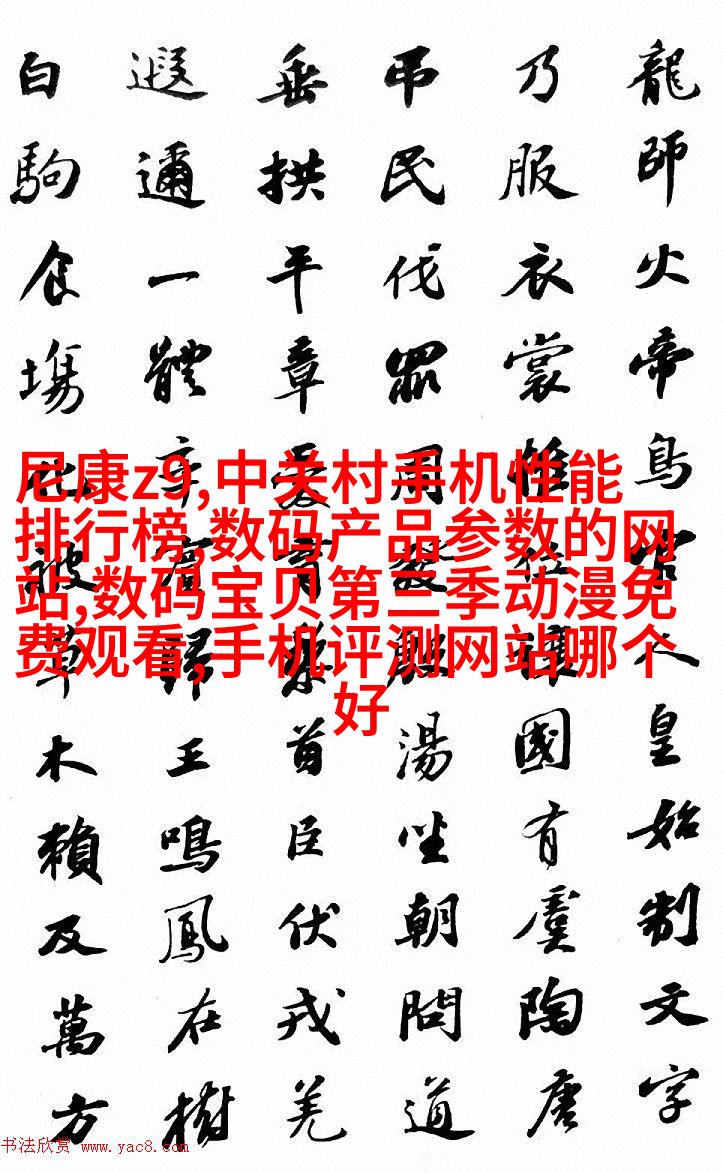 龍師火帝鳥官人皇始制文字
乃服衣裳推位讓國有虞陶唐
吊民伐罪周發殷湯坐朝問道
垂拱平章愛育黎首臣伏戎羌
遐邇一體率賓歸王鳴鳳在樹
白駒食場化被草木賴及萬方
尼康z9,中关村手机性能
排行榜,数码产品参数的网
站,数码宝贝第三季动漫免
费观看,手机评测网站哪个
好
书法欣赏 www.yac8.com